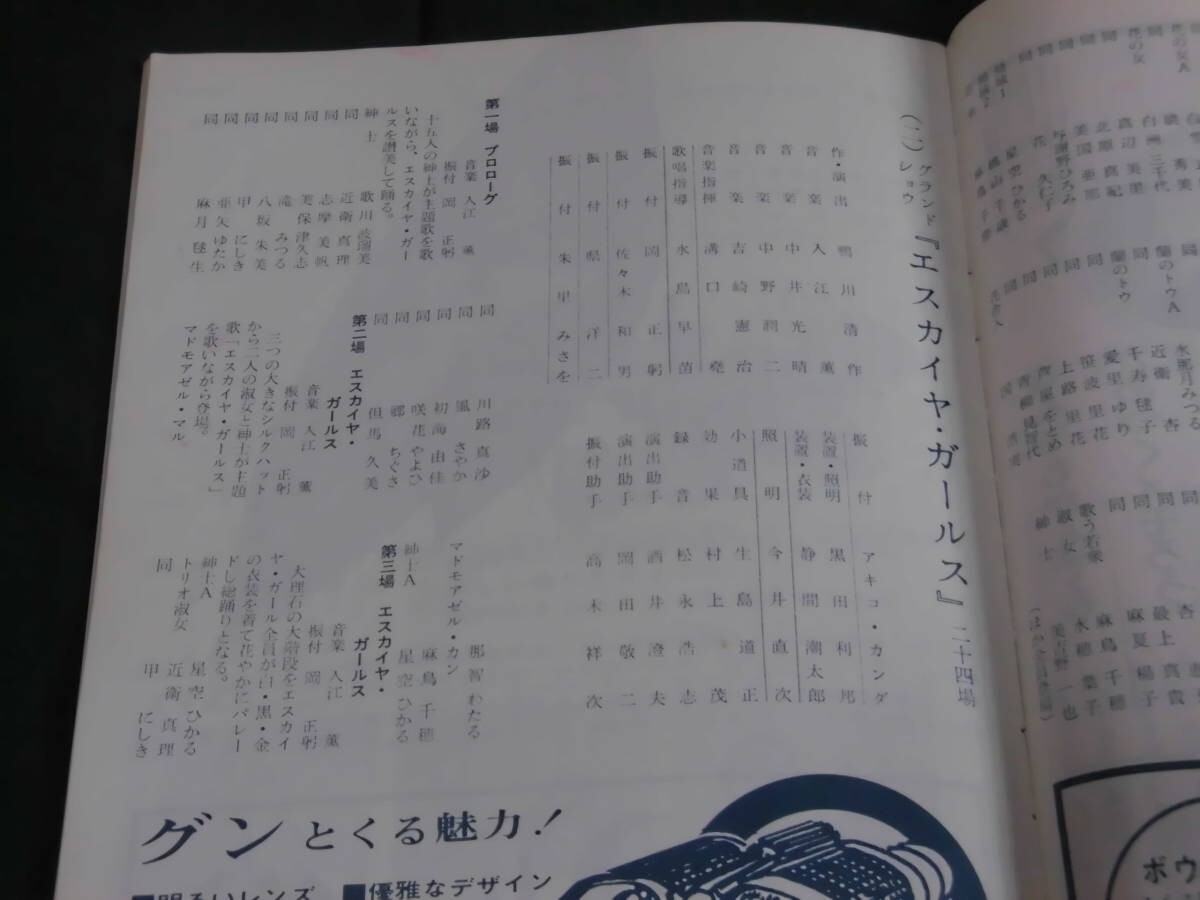 (二) グランドショウ『エスカイヤ・ガールス』二十四場
作・演出 鴨川清作
音楽 入江薫
音楽 中井光晴
音楽 中野潤二
音楽 吉崎憲治
音楽指揮 溝口堯
歌唱指導 水島早苗
振付 岡正躬
振付 佐々木和男
振付 県洋二
振付 朱里みさを
振付 アキコ・カンダ
装置・照明 黒田利邦
装置・衣装 静間潮太郎
照明 今井直次
小道具 生島道正
効果 村上茂
録音 松永浩志
演出助手 酒井澄夫
演出助手 岡田敬二
振付助手 高木祥次
第一場 プロローグ
音楽 入江薫
振付 岡正躬
十五人の紳士が主題歌を歌
いながら、エスカイヤ・ガー
ルスを讃美して踊る。
紳士 歌川波瑠美
同 近衛真理
同 志摩美帆
同 美保津久志
同 滝みつる
同 八坂朱美
同 甲にしき
同 亜矢ゆたか
同 麻月毬生
同 川路真沙
同 風さやか
同 初海由佳
同 咲花やよひ
同 郷ちぐさ
同 但馬久美
第二場 エスカイヤ・
ガールス
音楽 入江薫
振付 岡正躬
三つの大きなシルクハット
から二人の淑女と紳士が主題
歌「エスカイヤ・ガールス」
を歌いながら登場。
マドモアゼル・マル
マドモアゼル・カン
那智わたる
麻鳥千穂
紳士A 星空ひかる
第三場 エスカイヤ・
ガールス
音楽 入江薫
振付 岡正躬
大理石の大階段をエスカイ
ヤ・ガール全員が白・黒・金
の衣装を着て花やかにパレー
ドし総踊りとなる。
紳士A 星空ひかる
トリオ淑女 近衛真理
同 甲にしき
グンとくる魅力！
■明るいレンズ
■優雅なデザイン
花の女A
花の女
同
星空ひかる
蘭のトウA
蘭のトウ
同
水那月みつる
近衛
千寿毬子
愛里ゆり
笹波里花
上路里花
芦屋をとめ
青柳見智代
歌う若衆
淑女
紳士
最上真貴
麻夏楊子
麻鳥千穂
水穂葉子
美吉野一也
ボウ